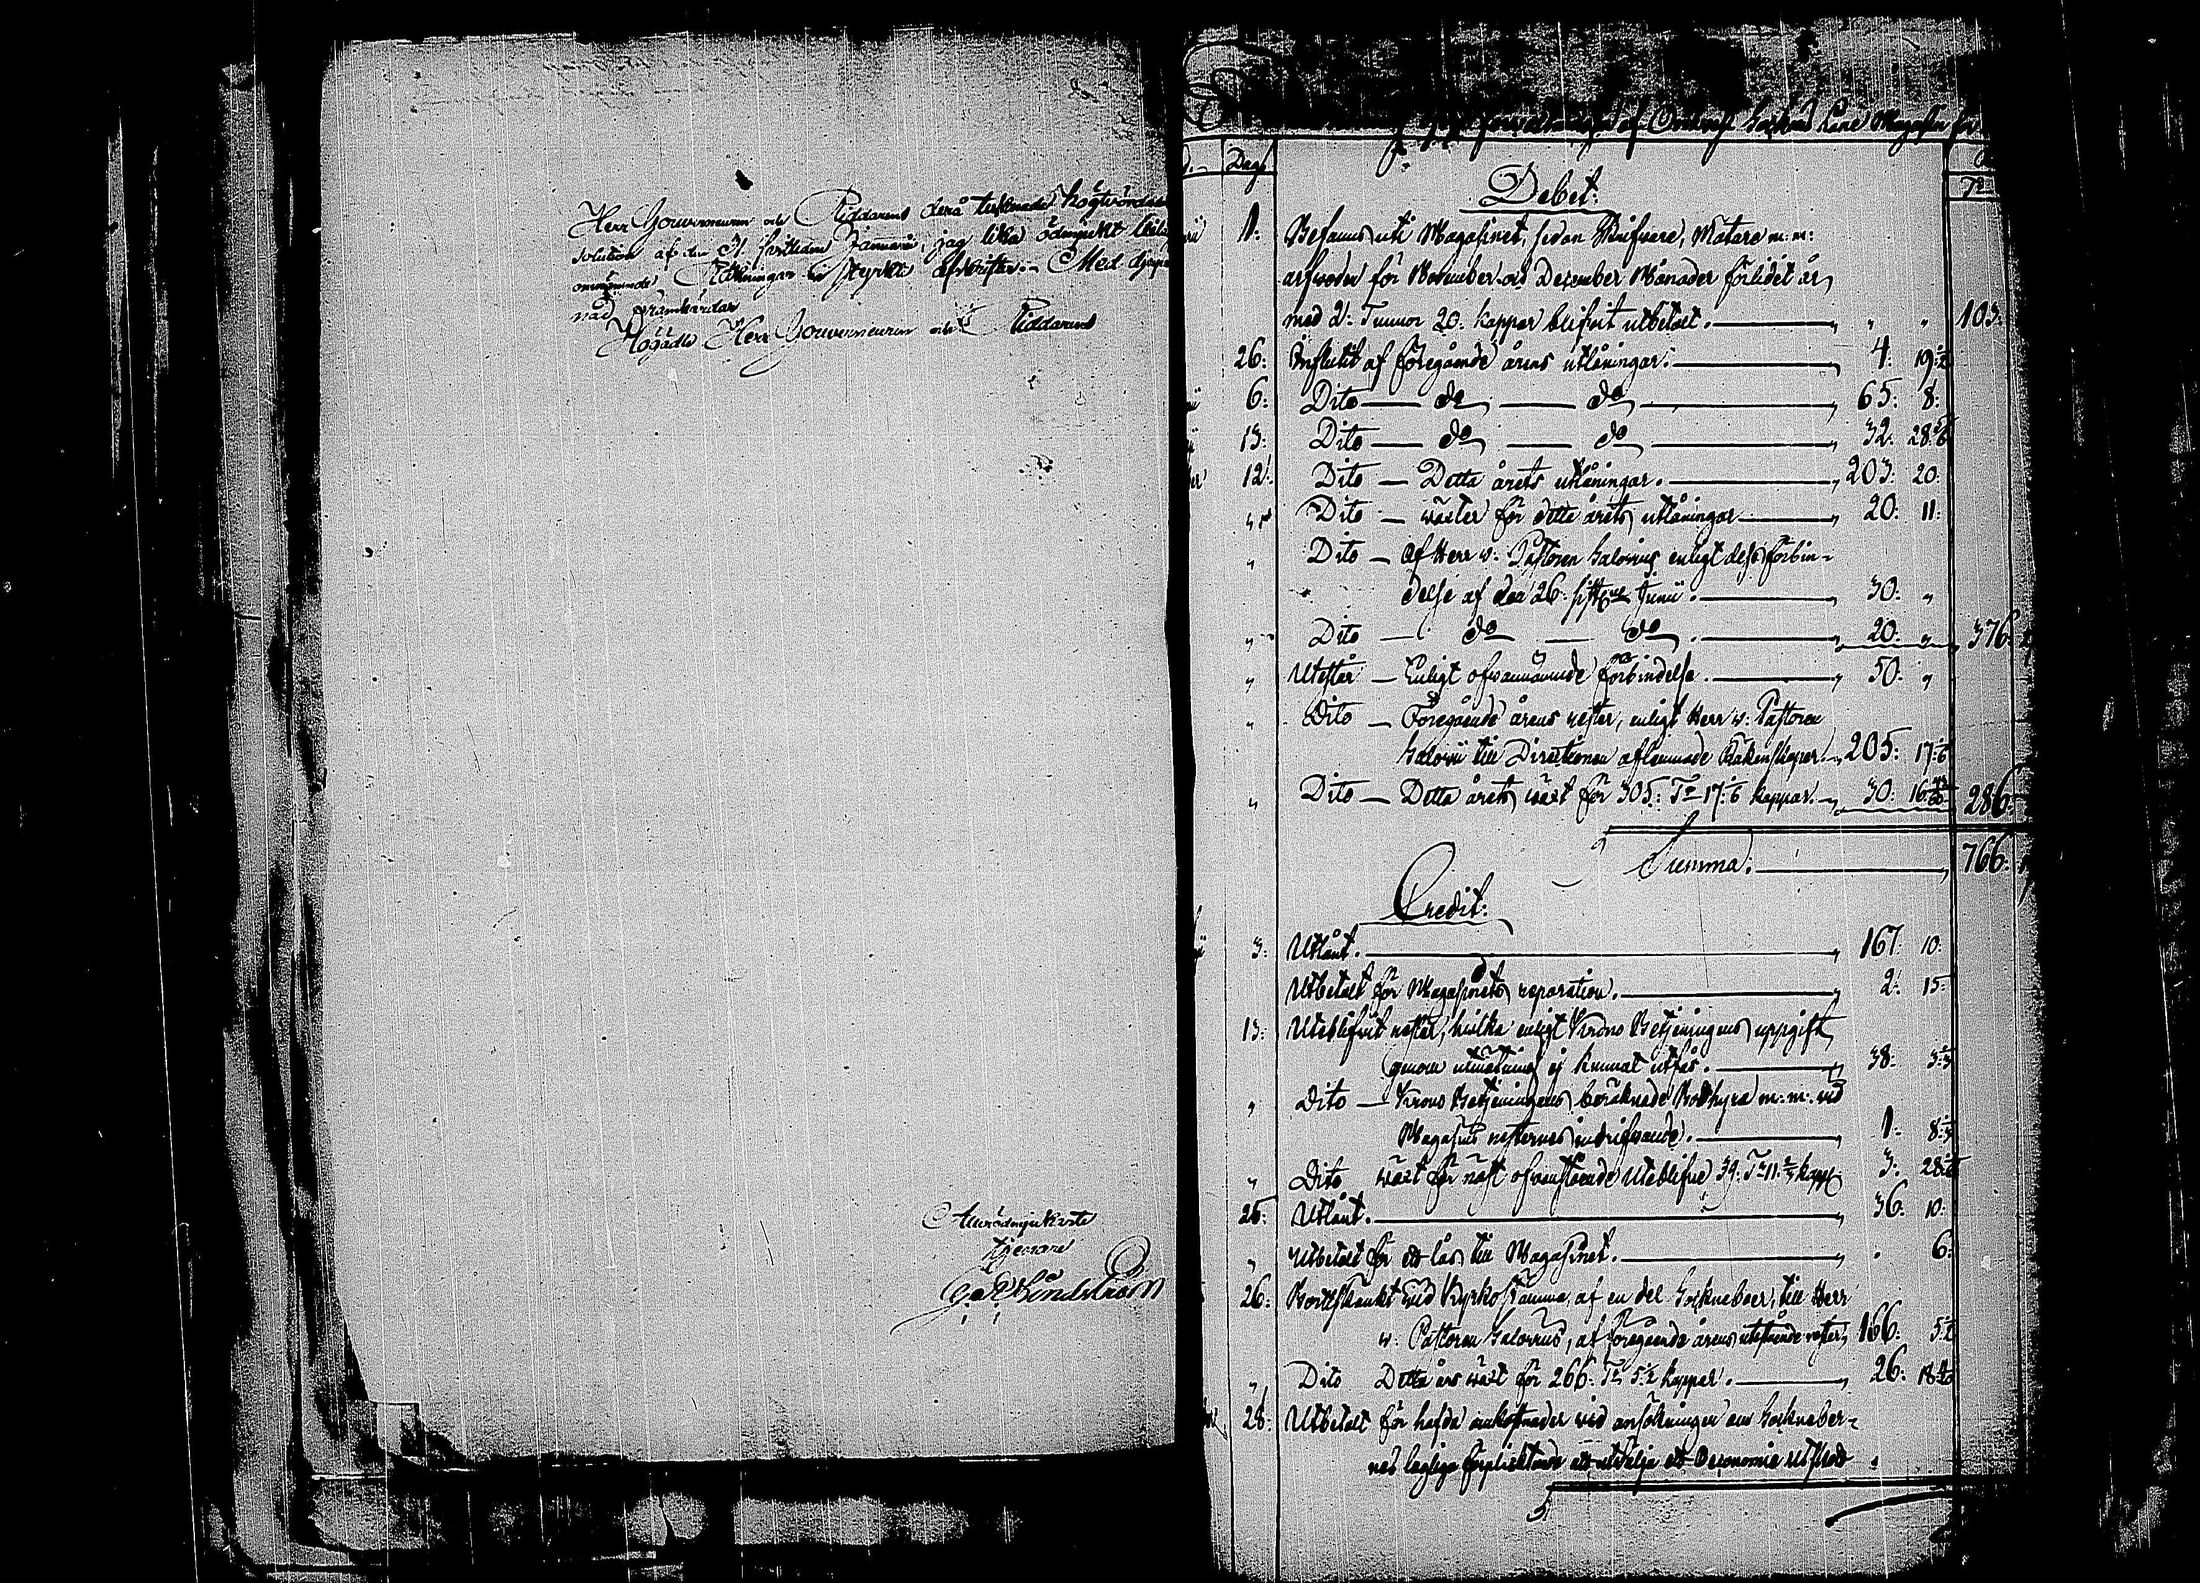 Herr Gouverneuren och Riddarens derå tecknade Högtvördade
solution af den 31 sistledne Januarii, jag lika ödmjukt
omnämnde Räkningar i styrkte afskrifter. Med djupa
nad framhärdar
Högädle Herr Gouverneuren och Riddarens
Allerödmjukaste
tjenare
Lindström
Sockens Låne Magasin för
Dag.
Debet:
1: Befanns uti Magasinet, sedan Skrifvare, Mätare m: m:
arfvoden för November och December Månader förlidet år,
med 2: Tunnor 20: kappar blifvit utbetalt. „ „ 103:
26: Influtit af föregående årens utlåningar. 4: 19 1/2
6: Dito do do 65: 8:
13: Dito do do 32: 28
12: Dito Detta årets utlåningar. 203: 20:
„ Dito växter för detta årets utlåningar 20: 11:
„ Dito af Herr v: Pastoren Salovius enligt dess förbin-
delse af den 26: sistl. Junii. 30: „
„ Dito do do 20: „ 376:
„ Utestår Enligt ofvannämnde förbindelse. 50: „
„ Dito Föregående årens rester, enligt Herr v: Pastoren
Salovii till Directionen aflemnade Räkenskaper. 205: 17
„ Dito Detta årets växt för 305: Tr 17 kappar. 30: 16 286:
Summa: 766:
Credit:
3: Utlånt. 167: 10:
Utbetalt för Magasinets reparation. 2: 15:
13: Uteblifvit rester, hvilka enligt Krono Betjeningens uppgift,
genom utmätning ej kunnat uttås. 38: 3
„ Dito Krono Betjeningens beräknade Bodhyra m: m: vid
Magasins resternes indrifvande. 1: 8
„ Dito växt för näst ofvanstående Uteblifne 39: Tr 11 kapp. 3: 28
25: Utlånt. 36: 10:
„ Utbetalt för ett lås till Magasinet. 6:
26: Bortskänkt vid Kyrkostämma, af en del Sockneboer, till Herr
v: Pastoren Salovius, af föregående årens utestående rester, 166: 5 1/2
„ Dito Detta års växt för 266: Tr 5 1/2 kappar. 26: 18
28: Utbetalt för hafde omkostnader vid ansökningen om Sockneboer-
nes lagliga förpliktande att utvälja ett Oeconomie Utskott